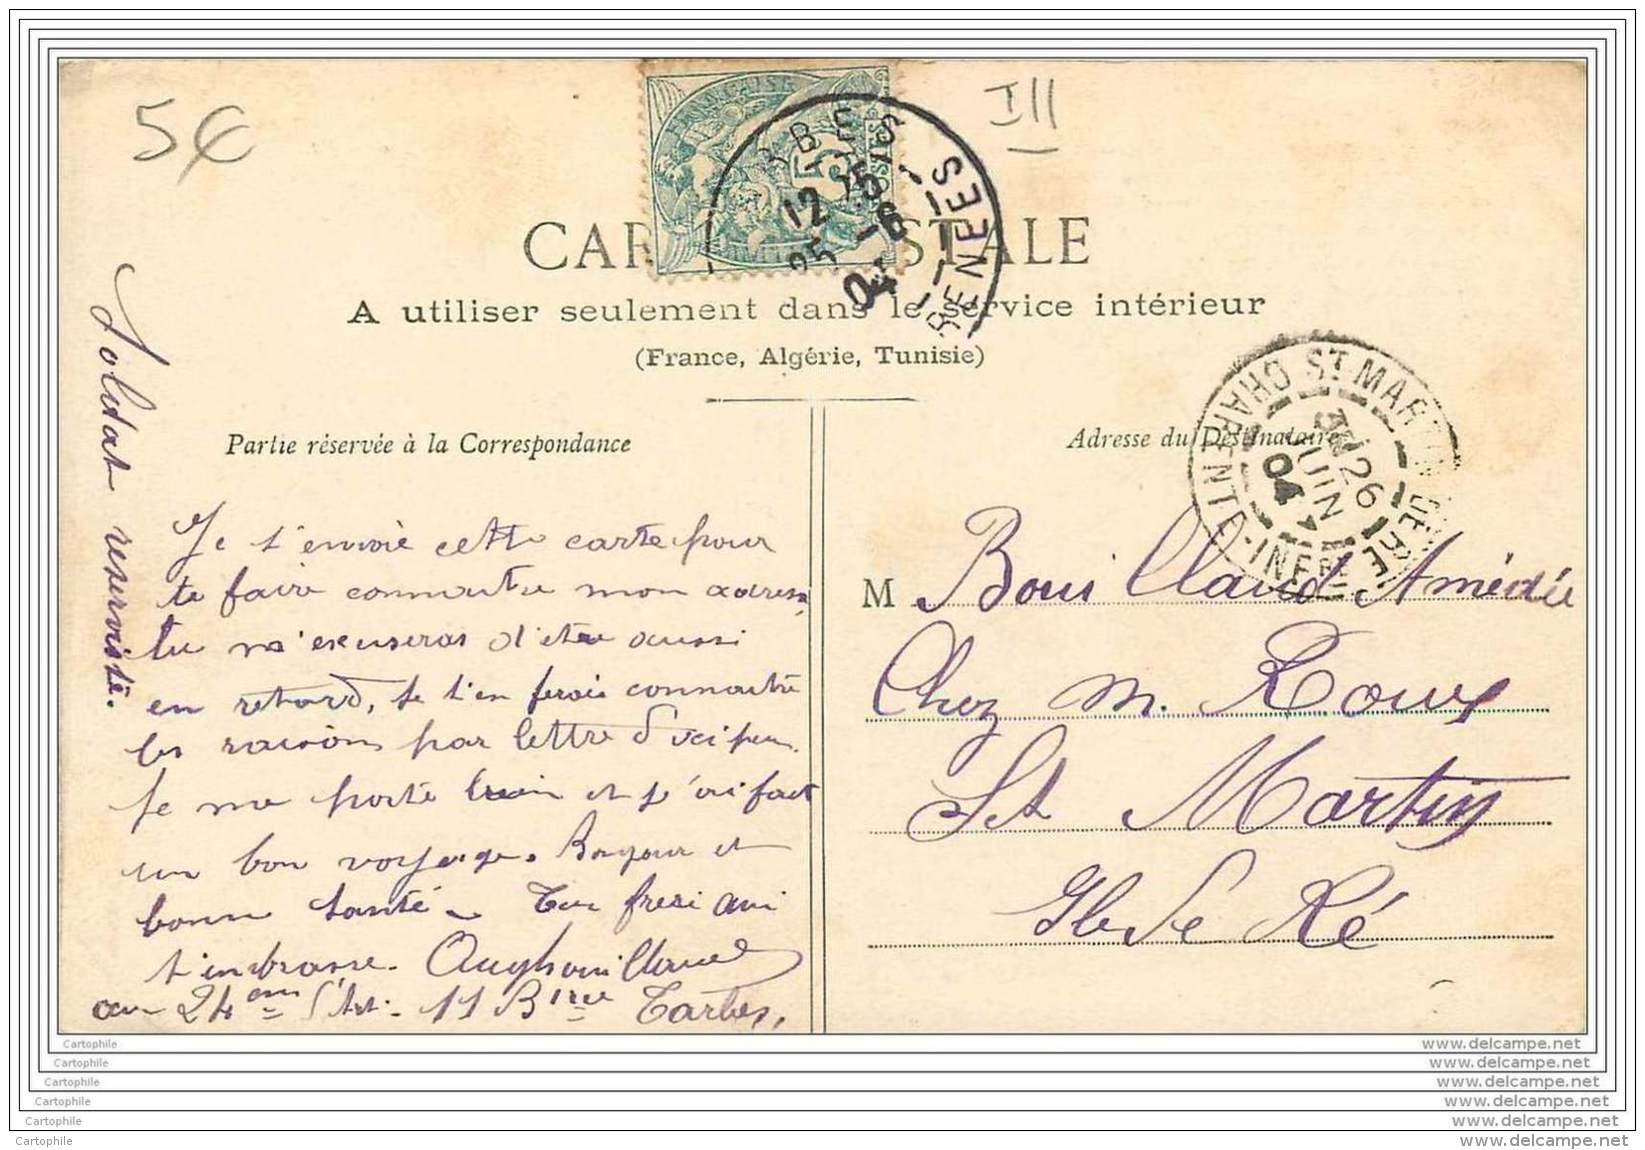 5€
III
FRANÇAISE
5
POSTES
12 15
25 -6
04
PYRENEES
CARTE POSTALE
A utiliser seulement dans le service intérieur
(France, Algérie, Tunisie)
ST MARTIN DE RE
CHARENTE-INFRE
26
JUIN
04
Partie réservée à la Correspondance
Adresse du Destinataire
Soldat reserviste.
Je t'envoie cette carte pour
te faire connaitre mon adresse,
tu m'excuseras d'être aussi
en retard, je t'en ferais connaitre
les raisons par lettre d'ici peu.
Je me porte bien et j'ai fait
un bon voyage. Bonjour et
bonne santé. Ton frere qui
t'embrasse.
au 24em d'Art. 11 Birie Tarbes,
M Bouillaud Amédée
Chez m. Roux
St Martin
Ile de Ré
Cartophile
Cartophile
Cartophile
Cartophile
Cartophile
Cartophile
www.delcampe.net
www.delcampe.net
www.delcampe.net
www.delcampe.net
www.delcampe.net
www.delcampe.net